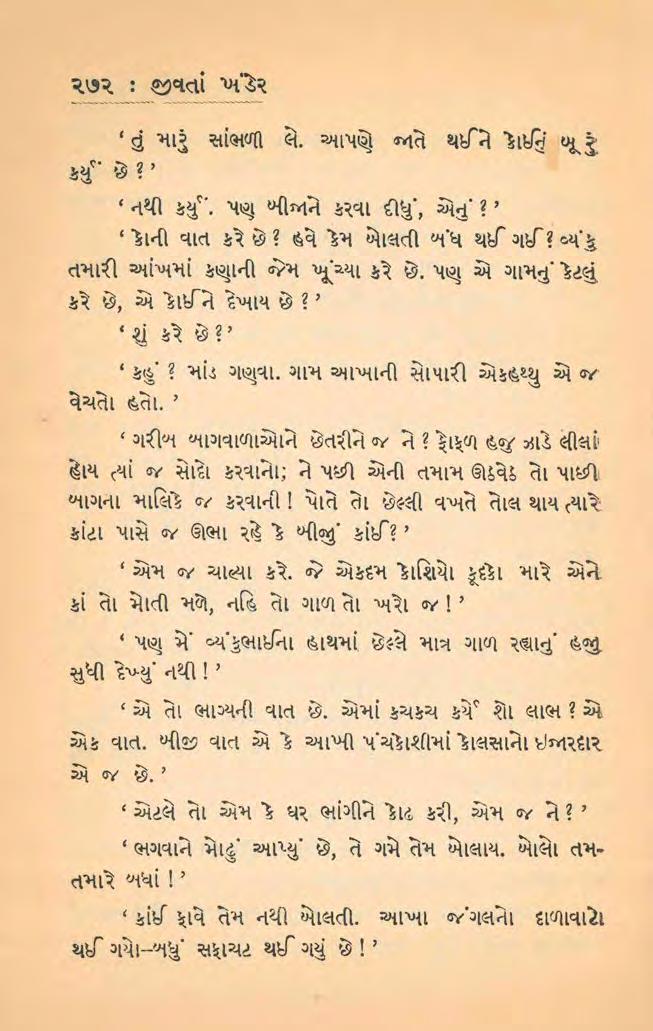 ૨૭૨ : જીવતાં ખંડેર
‘તું મારું સાંભળી લે. આપણે જાતે થઈને કોઈનું બૂરું
કર્યું છે?’
‘નથી કર્યું. પણ બીજાને કરવા દીધું, એનું?’
‘કોની વાત કરે છે? હવે કેમ બોલતી બંધ થઈ ગઈ? વ્યંકુ
તમારી આંખમાં કણાની જેમ ખૂંચ્યા કરે છે. પણ એ ગામનું કેટલું
કરે છે, એ કોઈને દેખાય છે?’
‘શું કરે છે?’
‘કહું? માંડ ગણવા. ગામ આખાની સોપારી એકહથ્થુ એ જ
વેચતો હતો.’
‘ગરીબ બાગવાળાઓને છેતરીને જ ને? ફોફળ હજુ ઝાડે લીલાં
હોય ત્યાં જ સોદો કરવાનો; ને પછી એની તમામ ઊઠવેઠ તો પાછી
બાગના માલિકે જ કરવાની! પોતે તો છેલ્લી વખતે તોલ થાય ત્યારે
કાંટા પાસે જ ઊભા રહે કે બીજું કાંઈ?’
‘એમ જ ચાલ્યા કરે. જે એકદમ કોશિયો કૂદકો મારે એને
કાં તો મોતી મળે, નહિ તો ગાળ તો ખરો જ!’
‘પણ મેં વ્યંકુભાઈના હાથમાં છેલ્લે માત્ર ગાળ રહ્યાનું હજી
સુધી દેખ્યું નથી!’
‘એ તો ભાગ્યની વાત છે. એમાં કચકચ કર્યે શો લાભ? એ
એક વાત. બીજી વાત એ કે આખી પંચકોશીમાં કોલસાનો ઇજારદાર
એ જ છે.’
‘એટલે તો એમ કે ઘર ભાંગીને કોઢ કરી, એમ જ ને?’
‘ભગવાને મોઢું આપ્યું છે, તે ગમે તેમ બોલાય. બોલો તમ-
તમારે બધાં!’
‘કાંઈ ફાવે તેમ નથી બોલતી. આખા જંગલનો દાળાવાટો
થઈ ગયો—બધું સફાચટ થઈ ગયું છે!’